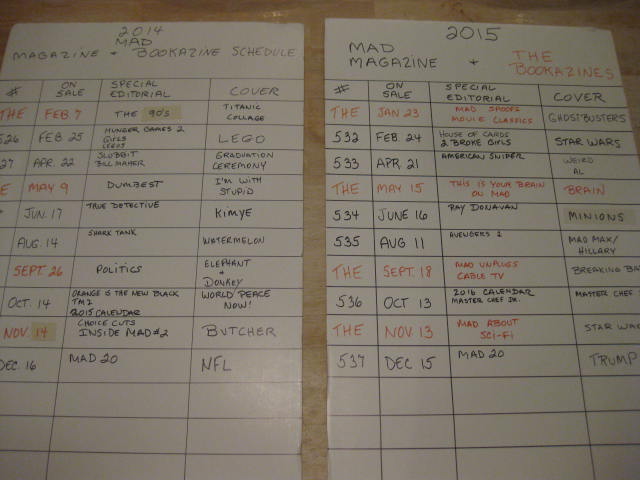 2014
MAD
MAGAZINE + BOOKAZINE SCHEDULE
# ON SALE SPECIAL EDITORIAL COVER
THE FEB 7 THE 90'S TITANIC COLLAGE
526 FEB 25 HUNGER GAMES 2 GIRLS LEGOS LEGO
27 APR. 22 SLOBBIT BILL MAHER GRADUATION CEREMONY
E MAY 9 DUMBEST I'M WITH STUPID
JUN. 17 TRUE DETECTIVE KIMYE
AUG. 14 SHARK TANK WATERMELON
SEPT. 26 POLITICS ELEPHANT + DONKEY
OCT. 14 ORANGE IS THE NEW BLACK TM2 2015 CALENDAR WORLD PEACE NOW!
NOV. 14 CHOICE CUTS INSIDE MAD #2 BUTCHER
DEC. 16 MAD 20 NFL
2015
MAD MAGAZINE + THE BOOKAZINES
# ON SALE SPECIAL EDITORIAL COVER
THE JAN 23 MAD SPOOFS MOVIE CLASSICS GHOSTBUSTERS
532 FEB. 24 HOUSE OF CARDS 2 BROKE GIRLS STAR WARS
533 APR. 21 AMERICAN SNIPER WEIRD AL
THE MAY 15 THIS IS YOUR BRAIN ON MAD BRAIN
534 JUNE 16 RAY DONAVAN MINIONS
535 AUG 11 AVENGERS 2 MAD MAX/ HILLARY
THE SEPT. 18 MAD UNPLUGS CABLE TV BREAKING BA
536 OCT 13 2016 CALENDAR MASTER CHEF JR. MASTER CHEF
THE NOV. 13 MAD ABOUT SCI-FI STAR WA
537 DEC 15 MAD 20 TRUMP